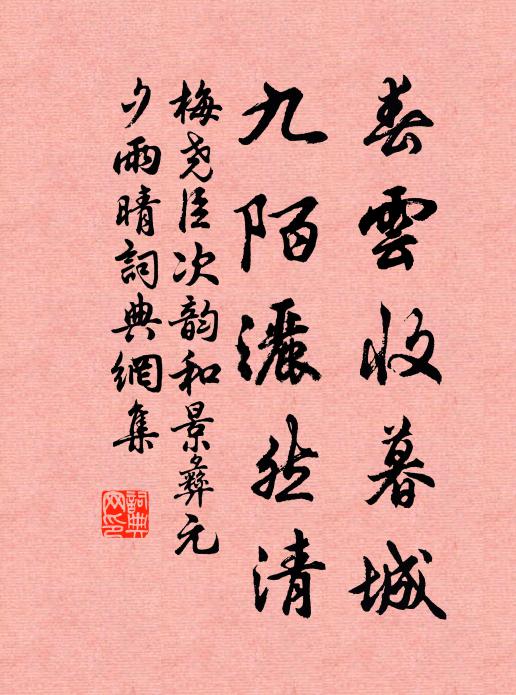 春雲收暮城
九陌灑然清
梅堯臣次韵和景彝元
夕雨晴詞典網集
詞典
网印